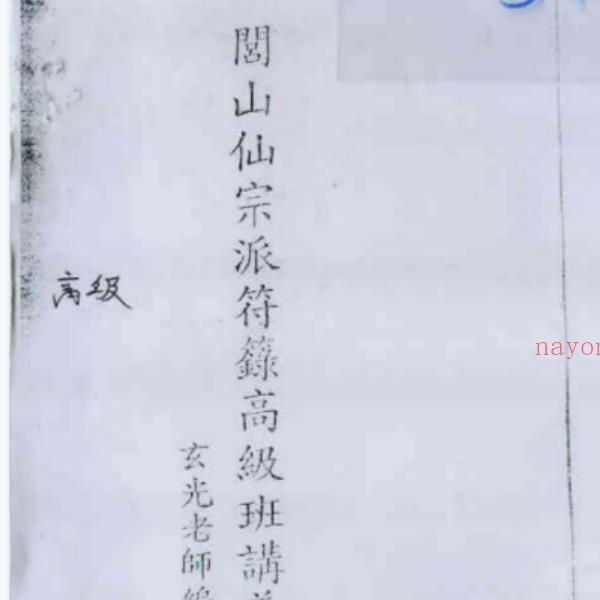 閭山仙宗派符籙高級班講
玄光老師編
高級
nayor